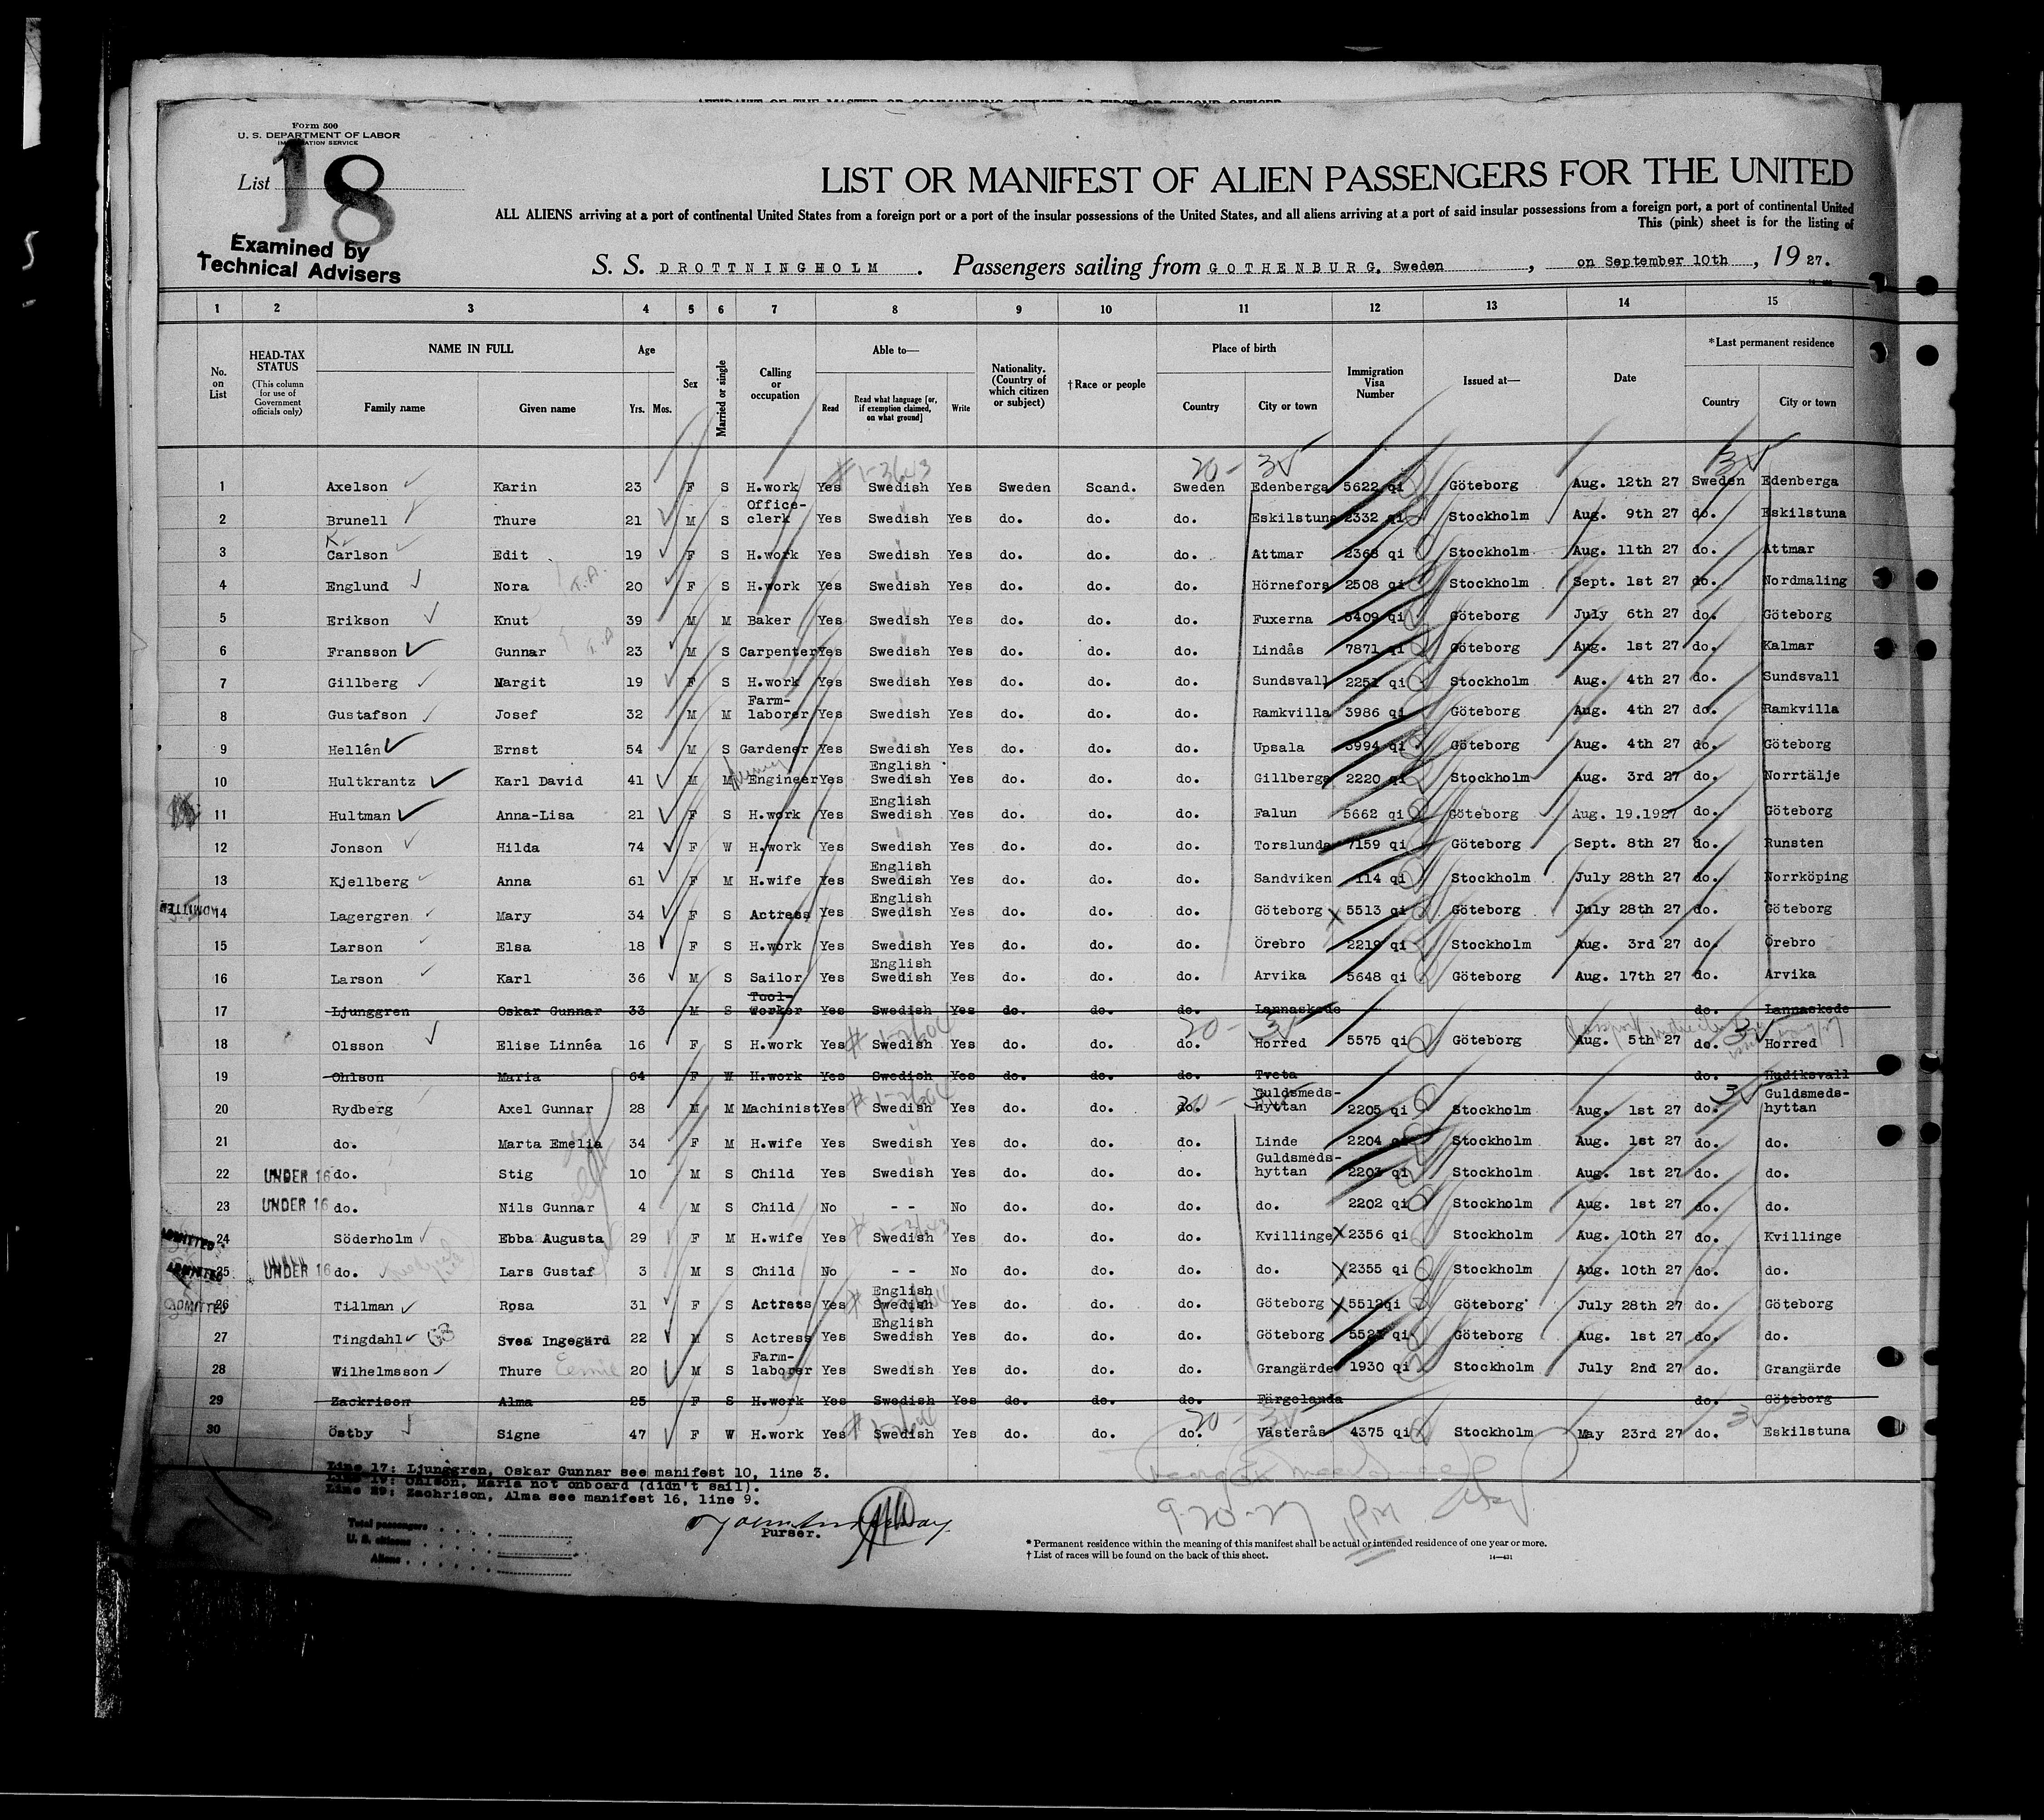 AFFIDAVIT OF THE MASTER OR COMMANDING OFFICER, OR FIRST OR SECOND OFFICER
Form 500
U. S. DEPARTMENT OF LABOR
IMMIGRATION SERVICE
List 18
Examined by
Technical Advisers
LIST OR MANIFEST OF ALIEN PASSENGERS FOR THE UNITED
ALL ALIENS arriving at a port of continental United States from a foreign port or a port of the insular possessions of the United States, and all aliens arriving at a port of said insular possessions from a foreign port, a port of continental United
This (pink) sheet is for the listing of
S. S. DROTTNINGHOLM. Passengers sailing from GOTHENBURG, Sweden, on September 10th, 1927.
1 2 3 4 5 6 7 8 9 10 11 12 13 14 15
No. on List
HEAD-TAX STATUS (This column for use of Government officials only)
NAME IN FULL
Family name Given name
Age
Yrs. Mos.
Sex
Married or single
Calling or occupation
Able to—
Read
Read what language [or, if exemption claimed, on what ground]
Write
Nationality. (Country of which citizen or subject)
†Race or people
Place of birth
Country City or town
Immigration Visa Number
Issued at—
Date
*Last permanent residence
Country City or town
#1-3643 20- 3V 3V
1 Axelson Karin 23 F S H.work Yes Swedish Yes Sweden Scand. Sweden Edenberga 5622 qi Göteborg Aug. 12th 27 Sweden Edenberga
2 Brunell Thure 21 M S Office-clerk Yes Swedish Yes do. do. do. Eskilstuna 2332 qi Stockholm Aug. 9th 27 do. Eskilstuna
3 Carlson Edit 19 F S H.work Yes Swedish Yes do. do. do. Attmar 2368 qi Stockholm Aug. 11th 27 do. Attmar
4 Englund Nora T.A. 20 F S H.work Yes Swedish Yes do. do. do. Hörnefors 2508 qi Stockholm Sept. 1st 27 do. Nordmaling
5 Erikson Knut 39 M M Baker Yes Swedish Yes do. do. do. Fuxerna 5409 qi Göteborg July 6th 27 do. Göteborg
6 Fransson Gunnar T.A 23 M S Carpenter Yes Swedish Yes do. do. do. Lindås 7871 qi Göteborg Aug. 1st 27 do. Kalmar
7 Gillberg Margit 19 F S H.work Yes Swedish Yes do. do. do. Sundsvall 2251 qi Stockholm Aug. 4th 27 do. Sundsvall
8 Gustafson Josef 32 M M Farm-laborer Yes Swedish Yes do. do. do. Ramkvilla 3986 qi Göteborg Aug. 4th 27 do. Ramkvilla
9 Hellén Ernst 54 M S Gardener Yes Swedish Yes do. do. do. Upsala 3994 qi Göteborg Aug. 4th 27 do. Göteborg
10 Hultkrantz Karl David 41 M M Engineer Yes English Swedish Yes do. do. do. Gillberga 2220 qi Stockholm Aug. 3rd 27 do. Norrtälje
11 Hultman Anna-Lisa 21 F S H.work Yes English Swedish Yes do. do. do. Falun 5662 qi Göteborg Aug. 19.1927 do. Göteborg
12 Jonson Hilda 74 F W H.work Yes Swedish Yes do. do. do. Torslunda 7159 qi Göteborg Sept. 8th 27 do. Runsten
13 Kjellberg Anna 61 F M H.wife Yes English Swedish Yes do. do. do. Sandviken 114 qi Stockholm July 28th 27 do. Norrköping
ADMITTED 14 Lagergren Mary 34 F S Actress Yes English Swedish Yes do. do. do. Göteborg X 5513 qi Göteborg July 28th 27 do. Göteborg
15 Larson Elsa 18 F S H.work Yes Swedish Yes do. do. do. Örebro 2219 qi Stockholm Aug. 3rd 27 do. Örebro
16 Larson Karl 36 M S Sailor Yes English Swedish Yes do. do. do. Arvika 5648 qi Göteborg Aug. 17th 27 do. Arvika
17 Ljunggren Oskar Gunnar 33 M S Tool-worker Yes Swedish Yes do. do. do. Lannaskede do. Lannaskede
18 Olsson Elise Linnéa 16 F S H.work Yes Swedish Yes do. do. do. Horred 5575 qi Göteborg Aug. 5th 27 do. Horred
19 Ohlson Maria 64 F W H.work Yes Swedish Yes do. do. do. Tveta do. Hudiksvall
20 Rydberg Axel Gunnar 28 M M Machinist Yes Swedish Yes do. do. do. Guldsmeds-hyttan 2205 qi Stockholm Aug. 1st 27 do. Guldsmeds-hyttan
21 do. Marta Emelia 34 F M H.wife Yes Swedish Yes do. do. do. Linde 2204 qi Stockholm Aug. 1st 27 do. do.
22 UNDER 16 do. Stig 10 M S Child Yes Swedish Yes do. do. do. Guldsmeds-hyttan 2203 qi Stockholm Aug. 1st 27 do. do.
23 UNDER 16 do. Nils Gunnar 4 M S Child No - - No do. do. do. do. 2202 qi Stockholm Aug. 1st 27 do. do.
ADMITTED 24 Söderholm Ebba Augusta 29 F M H.wife Yes Swedish Yes do. do. do. Kvillinge X 2356 qi Stockholm Aug. 10th 27 do. Kvillinge
ADMITTED 25 UNDER 16 do. Lars Gustaf 3 M S Child No - - No do. do. do. do. X 2355 qi Stockholm Aug. 10th 27 do. do.
ADMITTED 26 Tillman Rosa 31 F S Actress Yes English Swedish Yes do. do. do. Göteborg X 5512qi Göteborg July 28th 27 do. Göteborg
27 Tingdahl Svea Ingegärd 22 M S Actress Yes English Swedish Yes do. do. do. Göteborg 5521 qi Göteborg Aug. 1st 27 do. do.
28 Wilhelmsson Thure 20 M S Farm-laborer Yes Swedish Yes do. do. do. Grangärde 1930 qi Stockholm July 2nd 27 do. Grangärde
29 Zackrison Alma 25 F S H.work Yes Swedish Yes do. do. do. Färgelanda do. Göteborg
30 Östby Signe 47 F W H.work Yes Swedish Yes do. do. do. Västerås 4375 qi Stockholm May 23rd 27 do. Eskilstuna
Line 17: Ljunggren, Oskar Gunnar see manifest 10, line 3.
Line 19: Ohlson, Maria not onboard (didn't sail).
Line 29: Zachrison, Alma see manifest 16, line 9.
9-20-27 1PM
Total passengers
U. S. citizens
Aliens
Purser.
* Permanent residence within the meaning of this manifest shall be actual or intended residence of one year or more.
† List of races will be found on the back of this sheet.
14—431